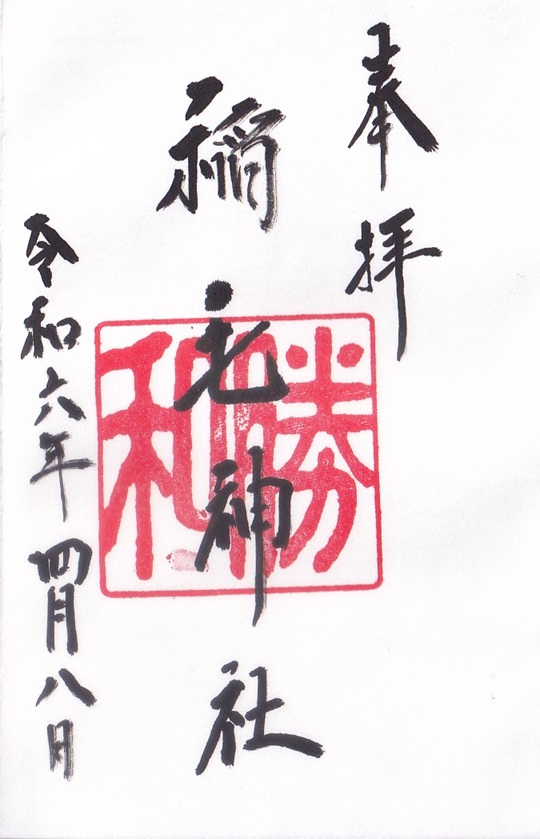 奉拝
稲毛神社
勝和
令和六年四月八日